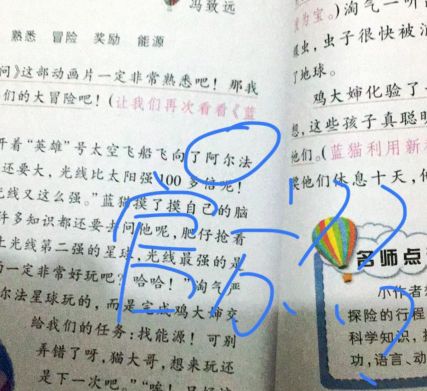 冯致远
熟悉 冒险 奖励 能源
问》这部动画片一定非常熟悉吧！那我
们的大冒险吧！(让我们再次看看《蓝
开着“英雄”号太空飞船飞向了阿尔法
还要大，光线比太阳强100多倍呢！
光线又这么强。”蓝猫摸了摸自己的脑
许多知识都还要去问他呢，肥仔抢着
上光线第二强的星球，光线最强的是
一定非常好玩吧？哈哈！”淘气
尔法星球玩的，而是完成鸡大婶交
给我们的任务：找能源！可别
弄错了呀，猫大哥，想来玩还
是下一次吧。”“唉！只好
为宝。)淘气一听
虫，虫子很快被
了地球。
鸡大婶化验了
想，这些孩子真聪明
他们。(蓝猫利用新
他们休息十天，
名师点
小作者
探险的行程
科学知识，
功，语言、动